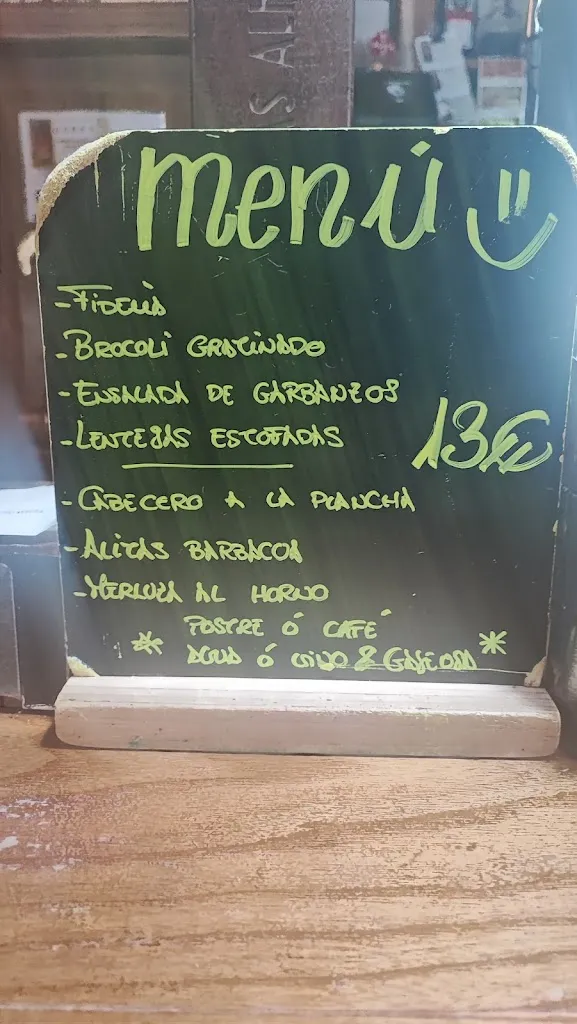 Menú
- FIDEUÀ
- BROCOLI GRATINADO
- ENSALADA DE GARBANZOS
- LENTEJAS ESTOFADAS
13€
- CABECERO A LA PLANCHA
- ALITAS BARBACOA
- MERLUZA AL HORNO
POSTRE Ó CAFÉ
* AGUA Ó VINO & GASEOSA *